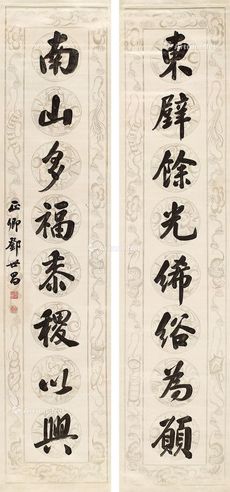 東壁餘光俙俗為願
南山多福黍稷以興
正卿鄧世昌